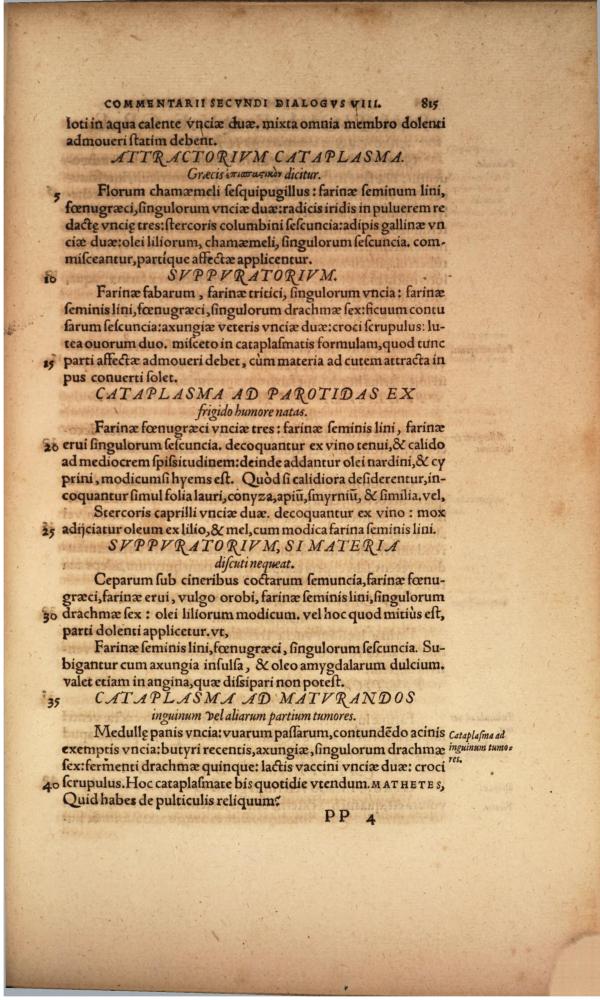 COMMENTARII SECVNDI DIALOGVS VIII. 815
loti in aqua calente vnciæ duæ. mixta omnia membro dolenti
admoueri statim debent.
ATTRACTORIVM CATAPLASMA.
Græcis dicitur.
5 Florum chamæmeli sesquipugillus : farinæ seminum lini,
fœnugræci, singulorum vnciæ duæ: radicis iridis in puluerem re
dactę vncię tres: stercoris columbini sescuncia: adipis gallinæ vn
ciæ duæ: olei liliorum, chamæmeli, singulorum sescuncia. com-
misceantur, partique affectæ applicentur.
10 SVPPVRATORIVM.
Farinæ fabarum , farinæ tritici, singulorum vncia : farinæ
seminis lini, fœnugræci, singulorum drachmæ sex: ficuum contu
sarum sescuncia: axungiæ veteris vnciæ duæ: croci scrupulus: lu-
tea ouorum duo. misceto in cataplasmatis formulam, quod tunc
15 parti affectæ admoueri debet, cùm materia ad cutem attracta in
pus conuerti solet.
CATAPLASMA AD PAROTIDAS EX
frigido humore natas.
Farinæ fœnugræci vnciæ tres : farinæ seminis lini, farinæ
20 erui singulorum sescuncia. decoquantur ex vino tenui, & calido
ad mediocrem spissitudinem: deinde addantur olei nardini, & cy
prini, modicum si hyems est. Quòd si calidiora desiderentur, in-
coquantur simul folia lauri, conyza, apiũ, smyrniũ, & similia. vel,
Stercoris caprilli vnciæ duæ. decoquantur ex vino : mox
25 adijciatur oleum ex lilio, & mel, cum modica farina seminis lini.
SVPPVRATORIVM, SI MATERIA
discuti nequeat.
Ceparum sub cineribus coctarum semuncia, farinæ fœnu-
græci, farinæ erui, vulgo orobi, farinæ seminis lini, singulorum
30 drachmæ sex : olei liliorum modicum. vel hoc quod mitiùs est,
parti dolenti applicetur. vt,
Farinæ seminis lini, fœnugræci, singulorum sescuncia. Su-
bigantur cum axungia insulsa, & oleo amygdalarum dulcium.
valet etiam in angina, quæ dissipari non potest.
35 CATAPLASMA AD MATVRANDOS
inguinum vel aliarum partium tumores.
Medullę panis vncia: vuarum passarum, contundẽdo acinis
exemptis vncia: butyri recentis, axungiæ, singulorum drachmæ
sex: fermenti drachmæ quinque: lactis vaccini vnciæ duæ: croci
40 scrupulus. Hoc cataplasmate bis quotidie vtendum. MATHETES,
Quid habes de pulticulis reliquum?
Cataplasma ad
inguinum tumo-
res.
PP 4